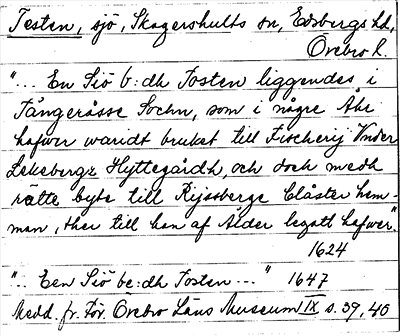 Testen, sjö, Skagershults sn, Edsbergs hd,
Örebro l.
"... En Siö b:dh Tosten liggendes i
Tångeråsse Sochn, som i någre Åhr
hafwer waridt bruket till Fischerij Vnder
Lekebergz Hyttegårdh, och doch medh
rätte byte till Rijssberge Clåster hem-
man, ther till han af Ålder legatt hafwer".
1624
"... Een Siö be:dh Tosten..." 1647
Medd. fr. För. Örebro Läns Museum IX s. 39, 40